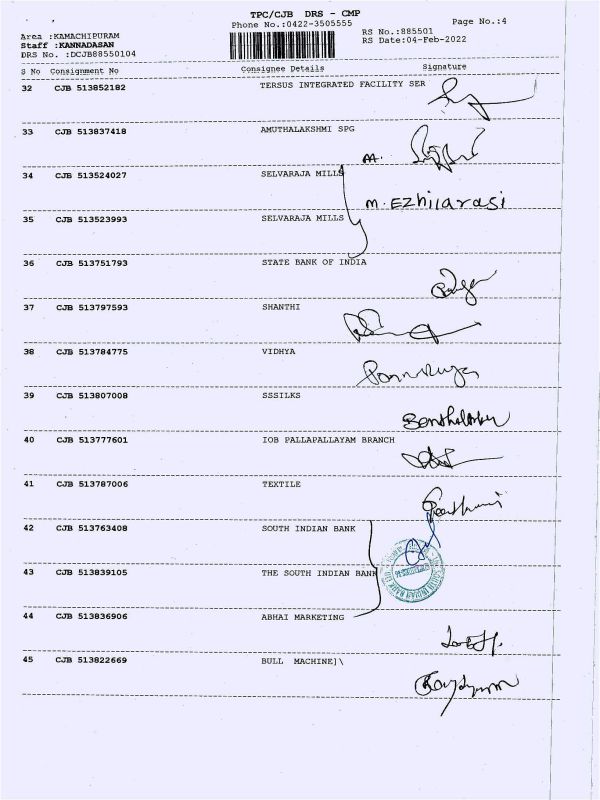 TPC/CJB DRS - CMP
Phone No.:0422-3505555
Page No.:4
Area :KAMACHIPURAM
Staff :KANNADASAN
DRS No. :DCJB88550104
RS No.:885501
RS Date:04-Feb-2022
S No Consignment No Consignee Details Signature
32 CJB 513852182 TERSUS INTEGRATED FACILITY SER
33 CJB 513837418 AMUTHALAKSHMI SPG
34 CJB 513524027 SELVARAJA MILLS
M. Ezhilarasi
35 CJB 513523993 SELVARAJA MILLS
36 CJB 513751793 STATE BANK OF INDIA
37 CJB 513797593 SHANTHI
38 CJB 513784775 VIDHYA
39 CJB 513807008 SSSILKS
40 CJB 513777601 IOB PALLAPALLAYAM BRANCH
41 CJB 513787006 TEXTILE
42 CJB 513763408 SOUTH INDIAN BANK
43 CJB 513839105 THE SOUTH INDIAN BANK
44 CJB 513836906 ABHAI MARKETING
45 CJB 513822669 BULL MACHINE]\